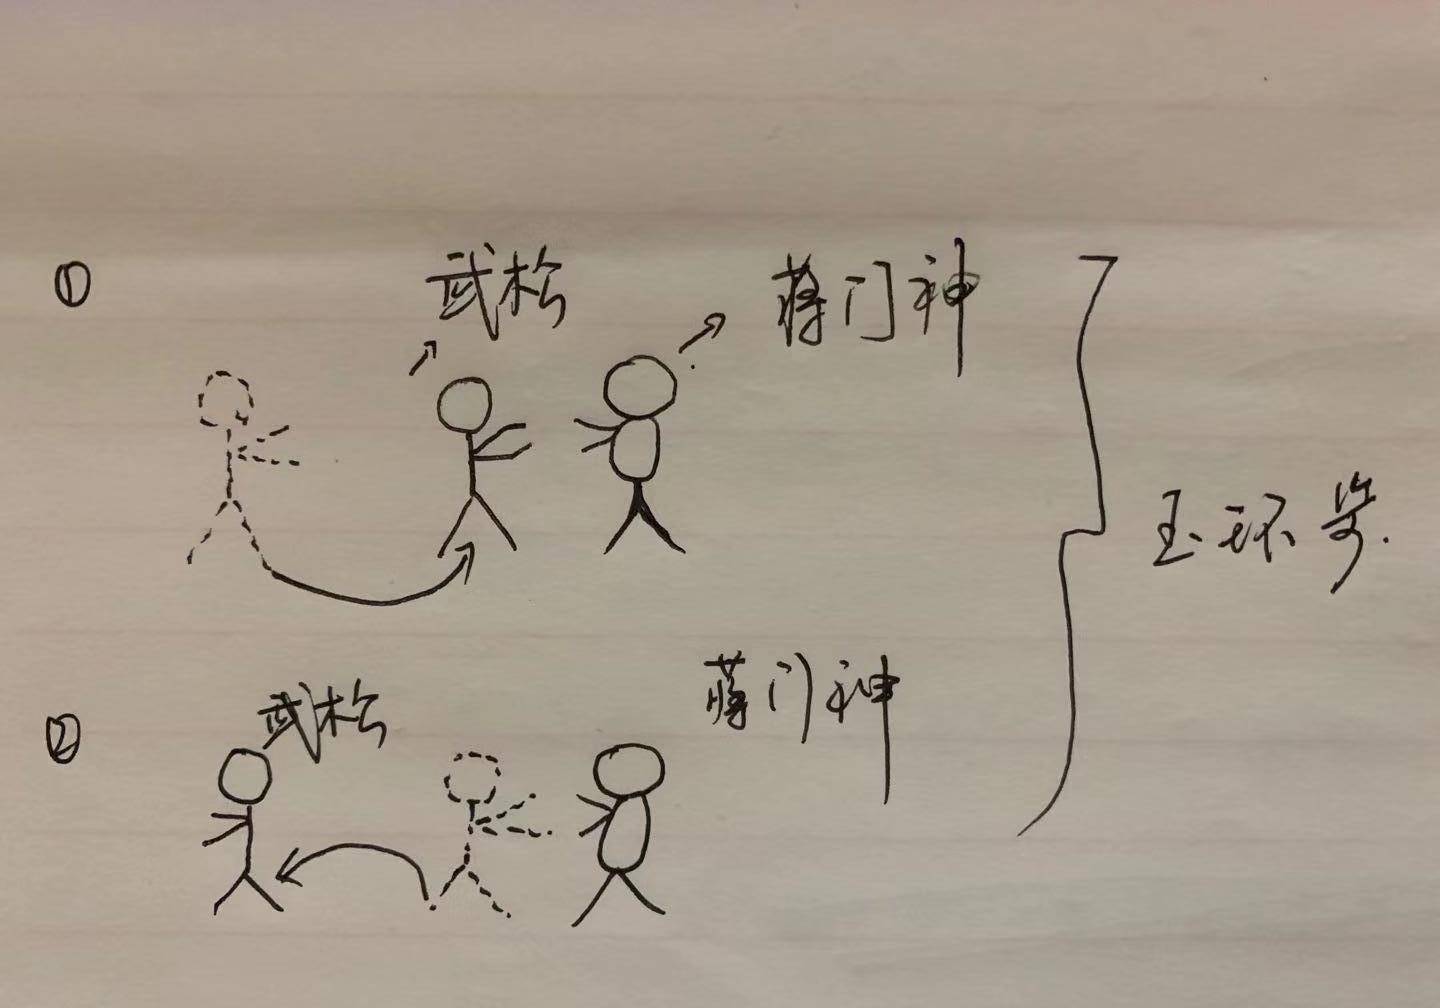 ① 武松 蒋门神
玉环步.
② 武松 蒋门神